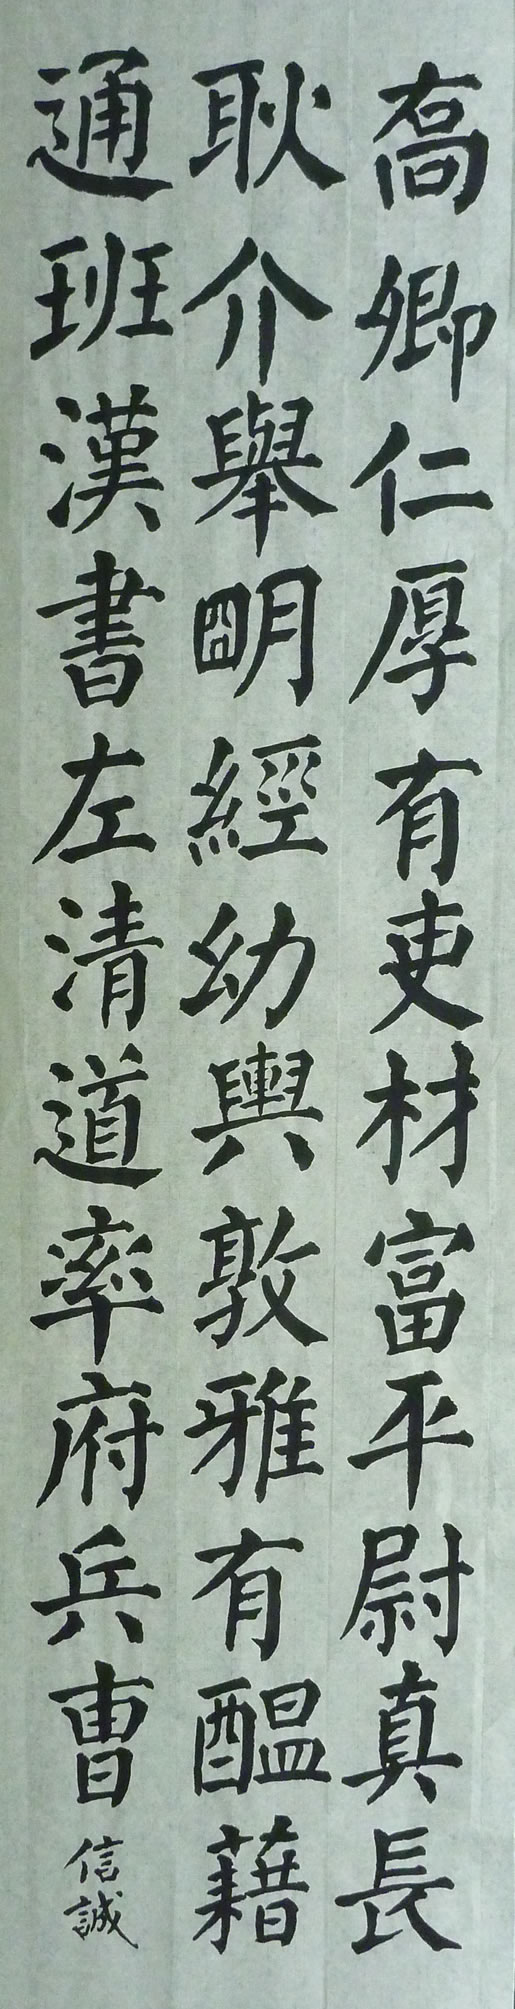 喬卿仁厚有吏材富平尉真長
耿介舉明經幼輿敦雅有醖藉
通班漢書左清道率府兵曹
信誠